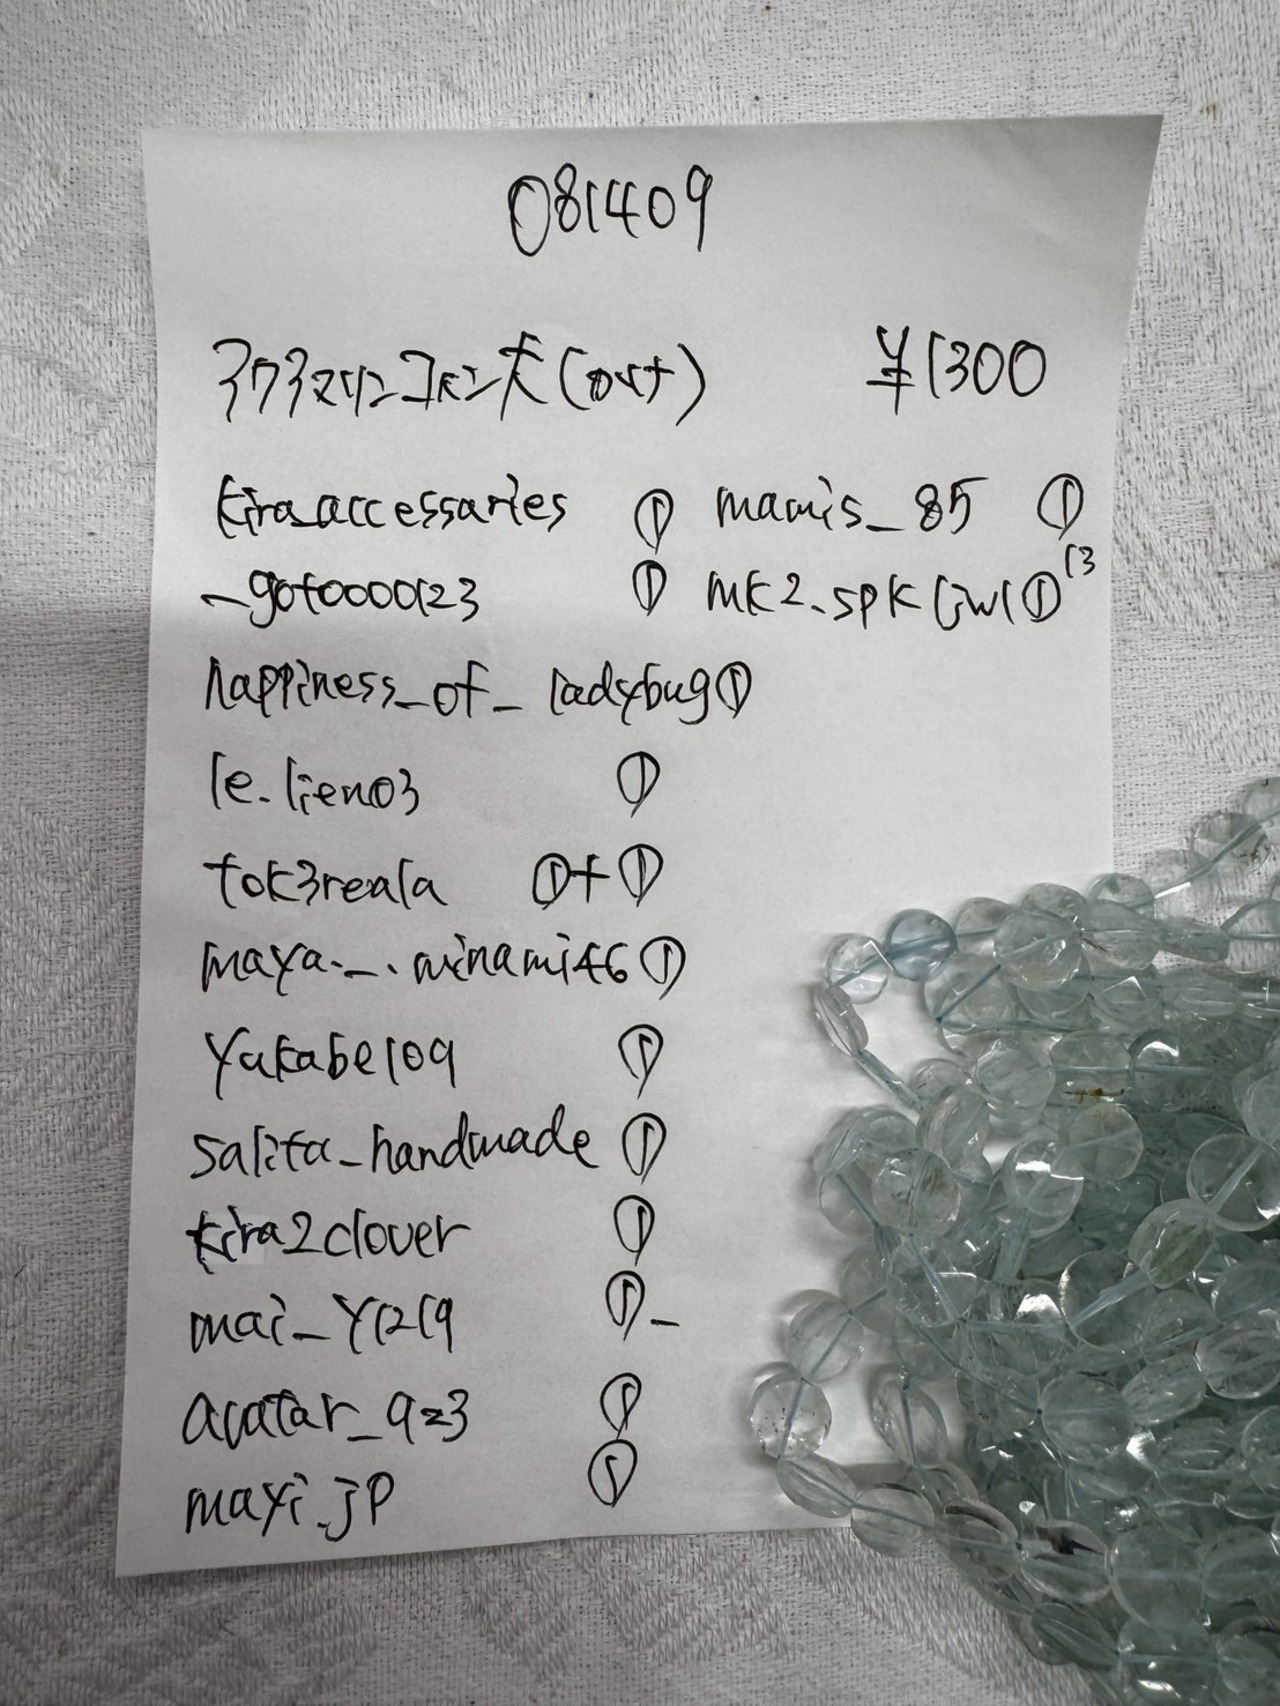 081409
アクアマリンコイン大(out) ¥1300
kira_accessaries ① mamis_85 ①
_goto000123 ① mk2.spk ① 13
happiness_of_ladybug ①
le.lien03 ①
tok3reala ①+①
maya._.minami46 ①
yukabe109 ①
salita_handmade ①
kira2clover ①
mai_y1219 ①_
avatar_923 ①
mayi.jp ①